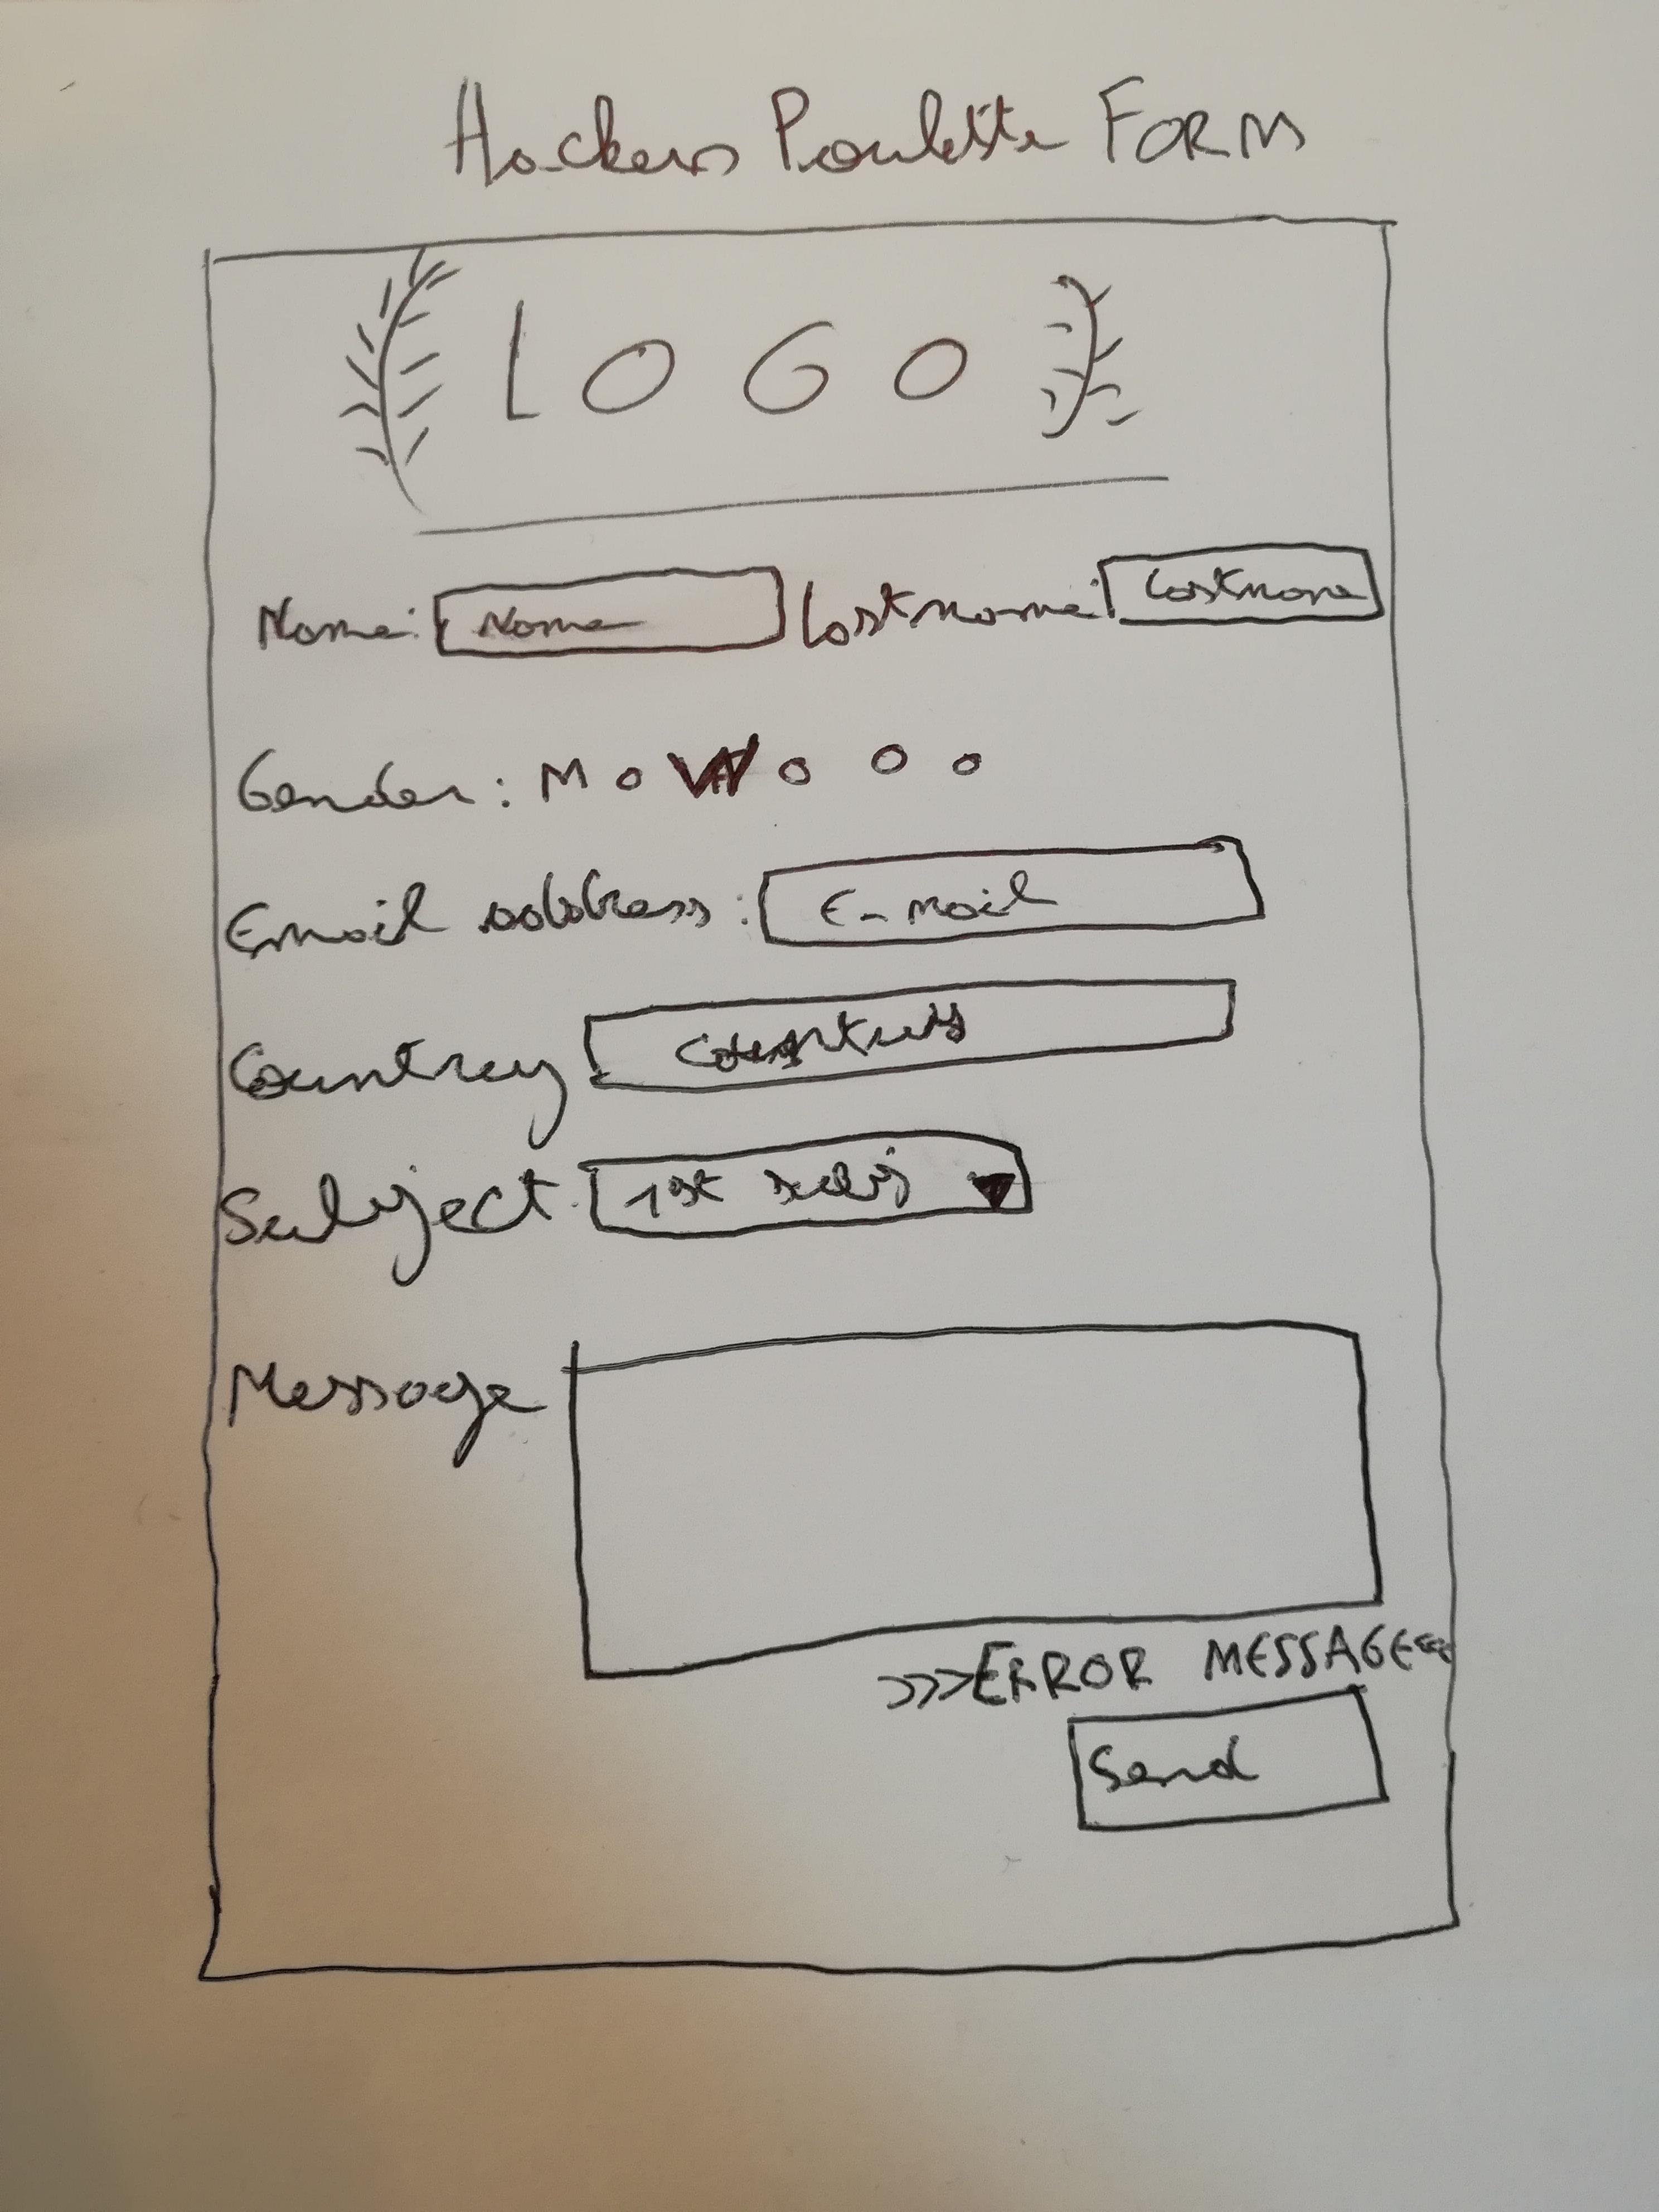 Hackers Poulette FORM
LOGO
Name: Name Lastname: Lastname
Gender: M o W o o o
Email address: E-mail
Country Country
Subject: 1st subj
Message
>>>ERROR MESSAGE<<<
Send